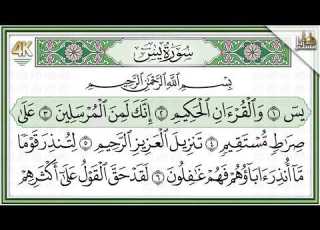 4K
سورة يس
بسم الله الرحمن الرحيم
يس ١ والقرءان الحكيم ٢ إنك لمن المرسلين ٣ على
صرط مستقيم ٤ تنزيل العزيز الرحيم ٥ لتنذر قوما
ما أنذر ءاباؤهم فهم غفلون ٦ لقد حق القول على أكثرهم